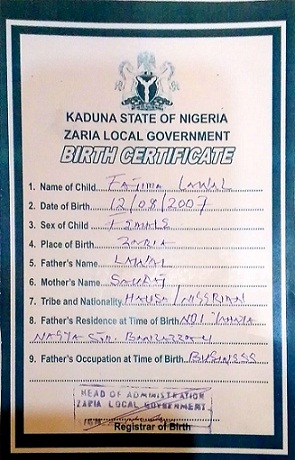 KADUNA STATE OF NIGERIA
ZARIA LOCAL GOVERNMENT
BIRTH CERTIFICATE
1. Name of Child Fatima Lawal
2. Date of Birth 12/08/2007
3. Sex of Child Female
4. Place of Birth Zaria
5. Father's Name Lawal
6. Mother's Name
7. Tribe and Nationality Hausa/Nigerian
8. Father's Residence at Time of Birth NO1
9. Father's Occupation at Time of Birth Business
HEAD OF ADMINISTRATION
ZARIA LOCAL GOVERNMENT
Registrar of Birth